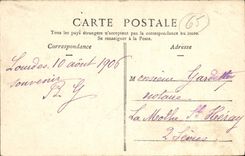 CARTE POSTALE
Tous les pays étrangers n'acceptent pas la correspondance au recto.
Se renseigner à la Poste.
Correspondance
Adresse
65
Lourdes, 10 août 1906
souvenir
Monsieur
notaire
La Mothe St Héray
2 Sèvres